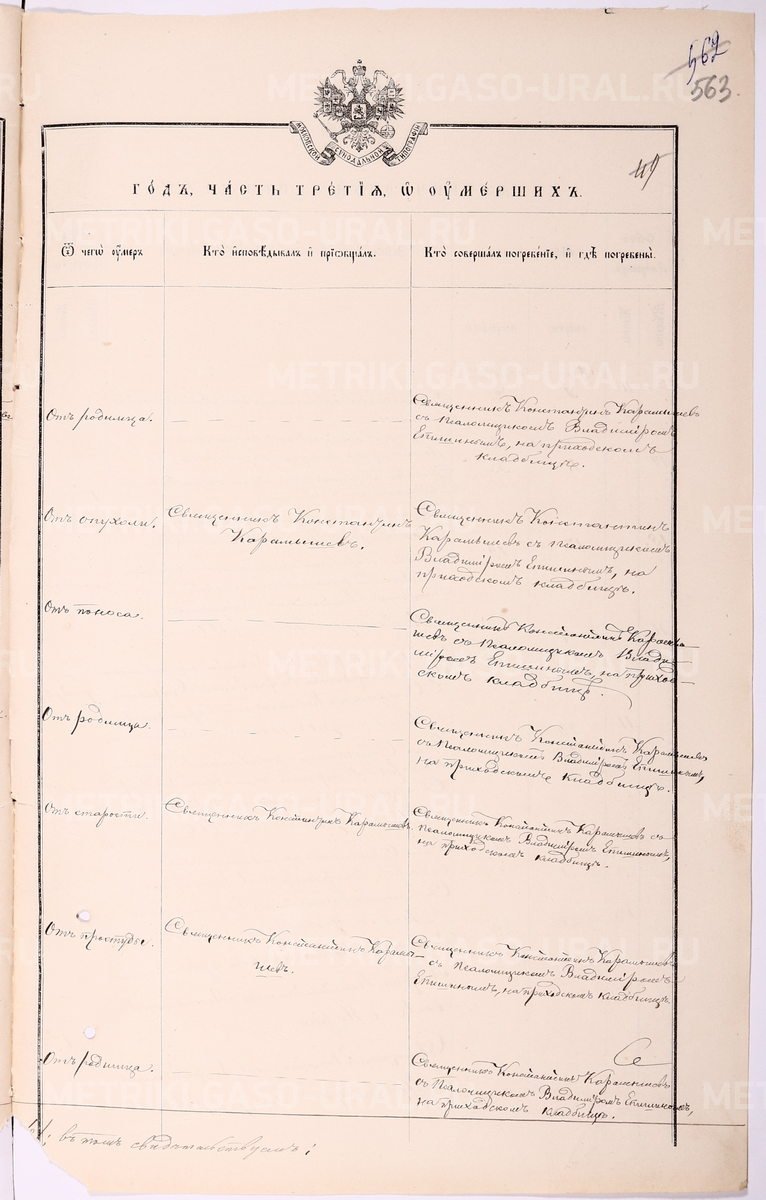 562
563.
МОСКОВСКОЙ СѴНОДАЛЬНОЙ ТИПОГРАФІИ
119
ГО́ДЪ, ЧА́СТЬ ТРЕ́ТІѦ, Ѡ҆ ОУ҆МЕ́РШИХЪ.
Ѿ чегѡ̀ оу҆́меръ
Кто̀ и҆сповѣ́дывалъ и҆ прїѻбща́лъ.
Кто̀ соверша́лъ погребе́нїе, и҆ гдѣ̀ погребены̀.
Отъ родимца.
Священникъ Константинъ Карамышевъ
съ псаломщикомъ Владиміромъ
Епишинымъ, на приходскомъ
кладбищѣ.
Отъ опухоли.
Священникъ Константинъ
Карамышевъ.
Священникъ Константинъ
Карамышевъ съ псаломщикомъ
Владиміромъ Епишинымъ, на
приходскомъ кладбищѣ.
Отъ поноса.
Священникъ Константинъ Карамы-
шевъ съ псаломщикомъ Влади-
міромъ Епишинымъ, на приход-
скомъ кладбищѣ.
Отъ родимца.
Священникъ Константинъ Карамышевъ
съ псаломщикомъ Владиміромъ Епишинымъ,
на приходскомъ кладбищѣ.
Отъ старости.
Священникъ Константинъ Карамышевъ.
Священникъ Константинъ Карамышевъ съ
псаломщикомъ Владиміромъ Епишинымъ,
на приходскомъ кладбищѣ.
Отъ простуды.
Священникъ Константинъ Карамы-
шевъ.
Священникъ Константинъ Карамышевъ
съ псаломщикомъ Владиміромъ
Епишинымъ, на приходскомъ кладбищѣ.
Отъ родимца.
Священникъ Константинъ Карамышевъ
съ псаломщикомъ Владиміромъ Епишинымъ,
на приходскомъ кладбищѣ.
въ томъ свидѣтельствуемъ:
METRIKI.GASO-URAL.RU